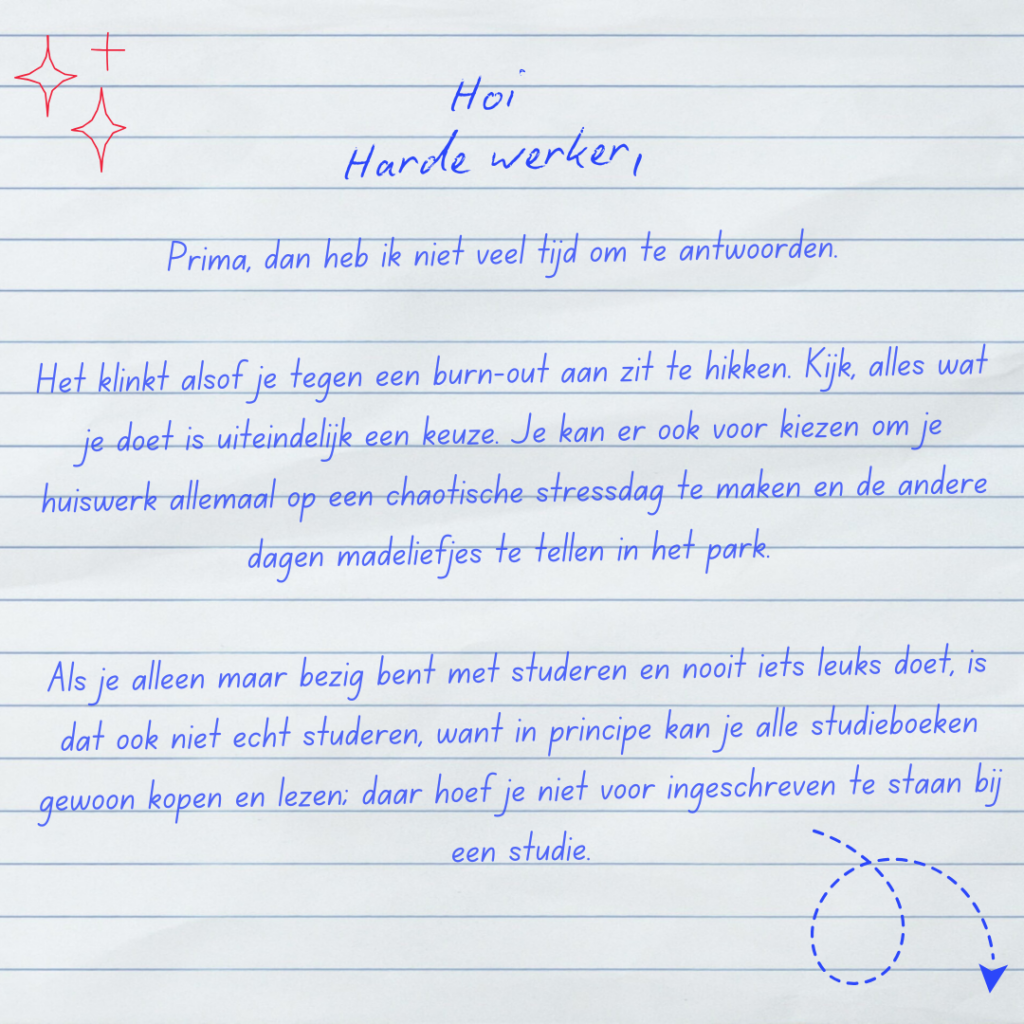 Hoi
Harde werker,
Prima, dan heb ik niet veel tijd om te antwoorden.
Het klinkt alsof je tegen een burn-out aan zit te hikken. Kijk, alles wat
je doet is uiteindelijk een keuze. Je kan er ook voor kiezen om je
huiswerk allemaal op een chaotische stressdag te maken en de andere
dagen madeliefjes te tellen in het park.
Als je alleen maar bezig bent met studeren en nooit iets leuks doet, is
dat ook niet echt studeren, want in principe kan je alle studieboeken
gewoon kopen en lezen; daar hoef je niet voor ingeschreven te staan bij
een studie.